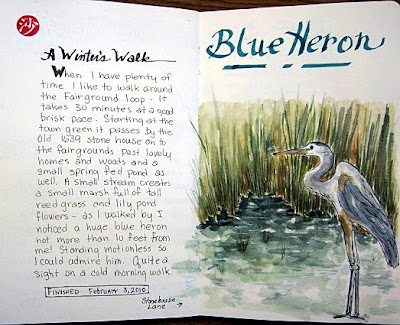 沙
A Winter's Walk
When I have plenty of
time I like to walk around
the Fairground loop. It
takes 30 minutes at a good
brisk pace. Starting at the
town green it passes by the
old 1639 stone house on to
the fairgrounds past lovely
homes and woods and a
small spring fed pond as
well. A small stream creates
a small marsh full of tall
reed grass and lily pond
flowers - as I walked by I
noticed a huge blue heron
not more than 10 feet from
me! Standing motionless so
I could admire him. Quite a
sight on a cold morning walk.
Finished February 3, 2010
Stonehouse
Lane →
Blue Heron